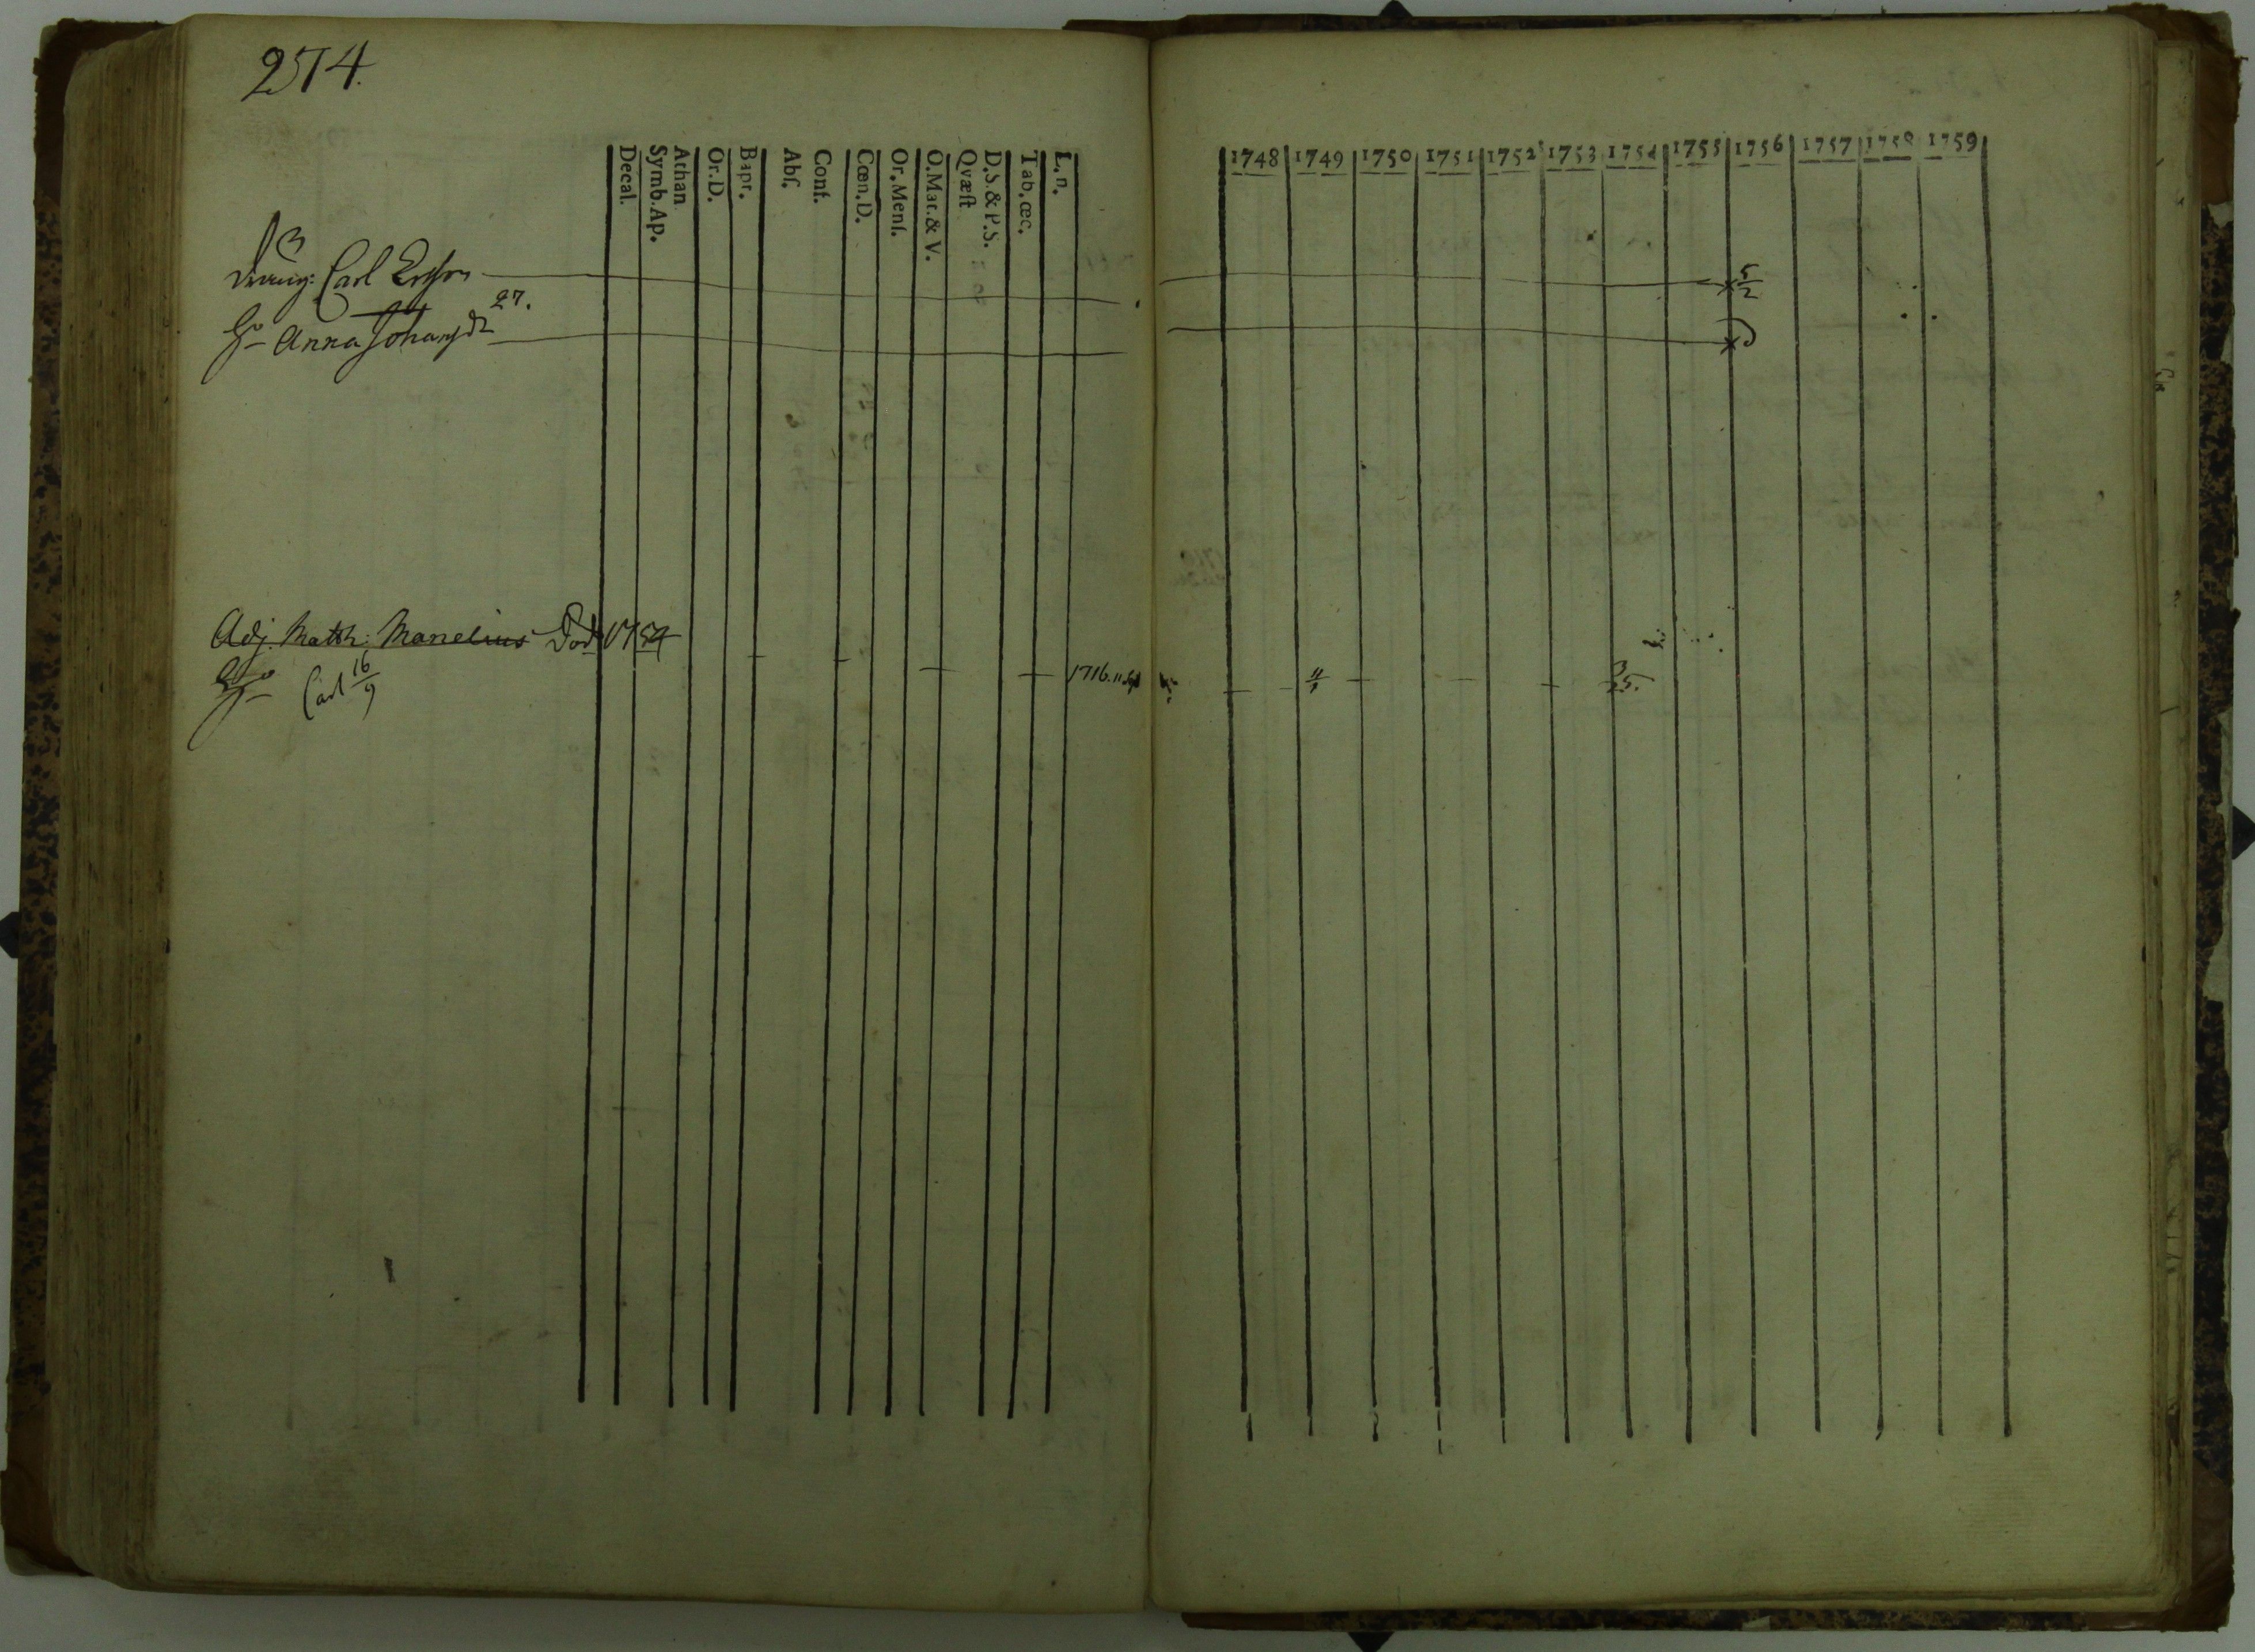 274.
Decal.
Symb. Ap.
Athan
Or. D.
Bapt.
Abſ.
Conf.
Cœn. D.
Or. Menſ.
O. Mat. & V.
Qvæſt
D. S. & P. S.
Tab. œc.
L. n.
1748 1749 1750 1751 1752 1753 1754 1755 1756 1757 1758 1759
Carl 5/2
27.
Anna Johansdr
Adj. Matth: Monelius Död 1754
Carl 16/9 1716. 11/1